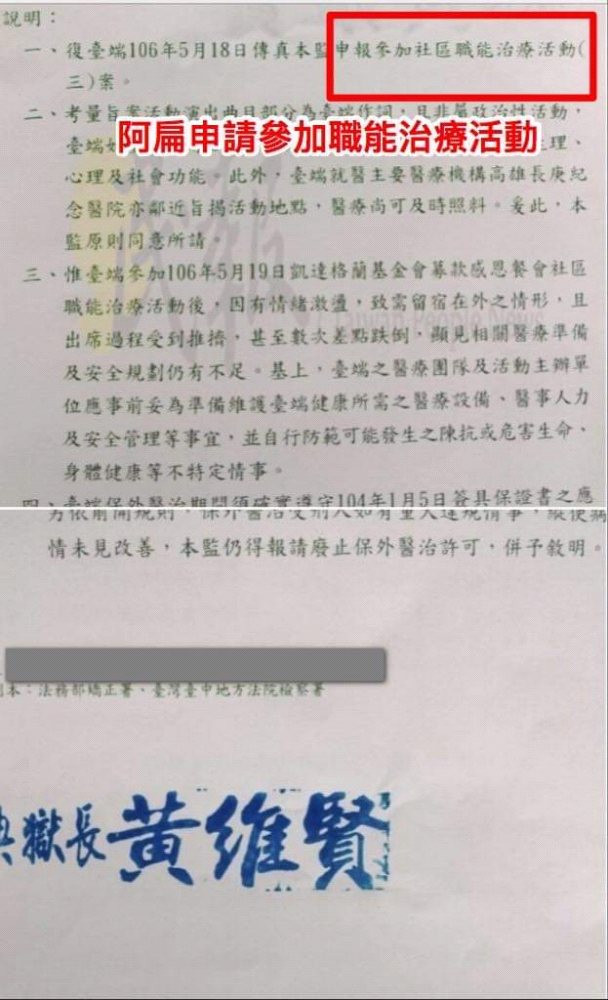 說明：
一、復臺端106年5月18日傳真本監申報參加社區職能治療活動(
三)案。
二、考量旨案活動演出曲目部分為臺端作詞，且非屬政治性活動，
阿扁申請參加職能治療活動
臺端
理、
心理及社會功能。此外，臺端就醫主要醫療機構高雄長庚紀
念醫院亦鄰近旨揭活動地點，醫療尚可及時照料。爰此，本
監原則同意所請。
三、惟臺端參加106年5月19日凱達格蘭基金會募款感恩餐會社區
職能治療活動後，因有情緒激盪，致需留宿在外之情形，且
出席過程受到推擠，甚至數次差點跌倒，顯見相關醫療準備
及安全規劃仍有不足。基上，臺端之醫療團隊及活動主辦單
位應事前妥為準備維護臺端健康所需之醫療設備、醫事人力
及安全管理等事宜，並自行防範可能發生之陳抗或危害生命、
身體健康等不特定情事。
四、臺端保外醫治期間須確實遵守104年1月5日簽具保證書之應
另依前開規則，保外醫治受刑人如有重大違規情事，縱使病
情未見改善，本監仍得報請廢止保外醫治許可，併予敘明。
本：法務部矯正署、臺灣臺中地方法院檢察署
典獄長 黃維賢